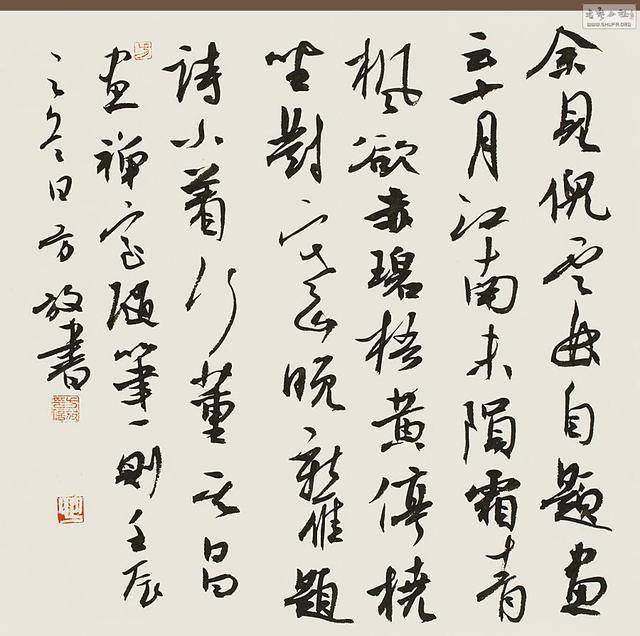 余見倪雲自題畫
云十月江南未隕霜青
楓欲赤碧梧黃停橈
坐對寒山晚新雁題
詩小着行董其昌
畫禪室隨筆一則壬辰
之冬日方放書
WWW.SHUFA.ORG